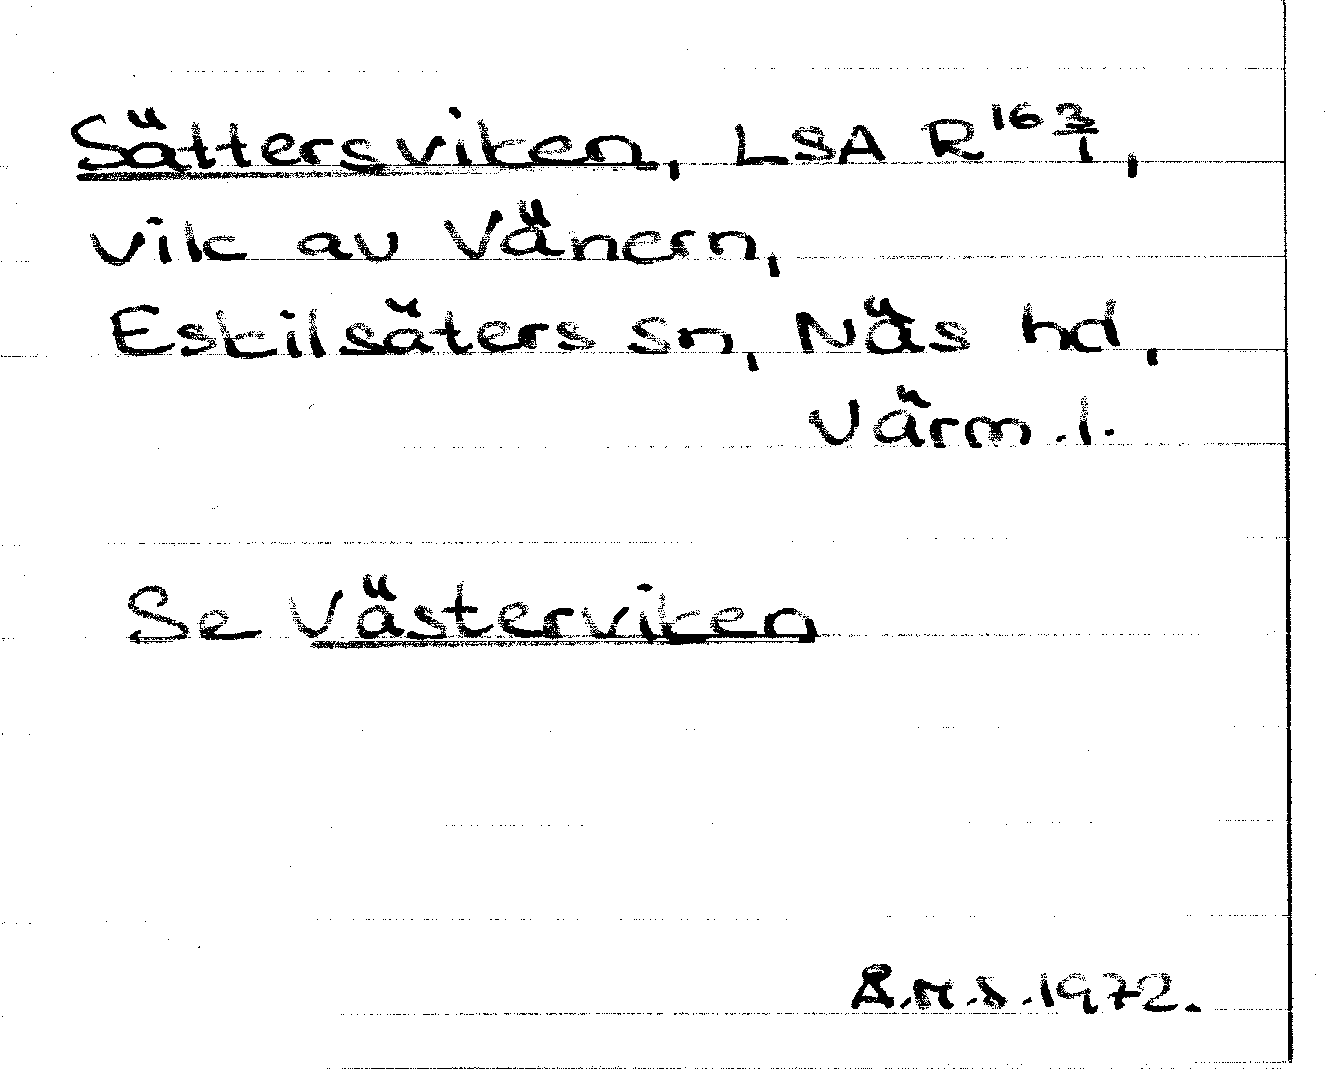 Sättersviken, LSA R 16 3/1,
vik av Vänern,
Eskilsäters sn, Näs hd,
Värm.l.
Se Västerviken
1972.